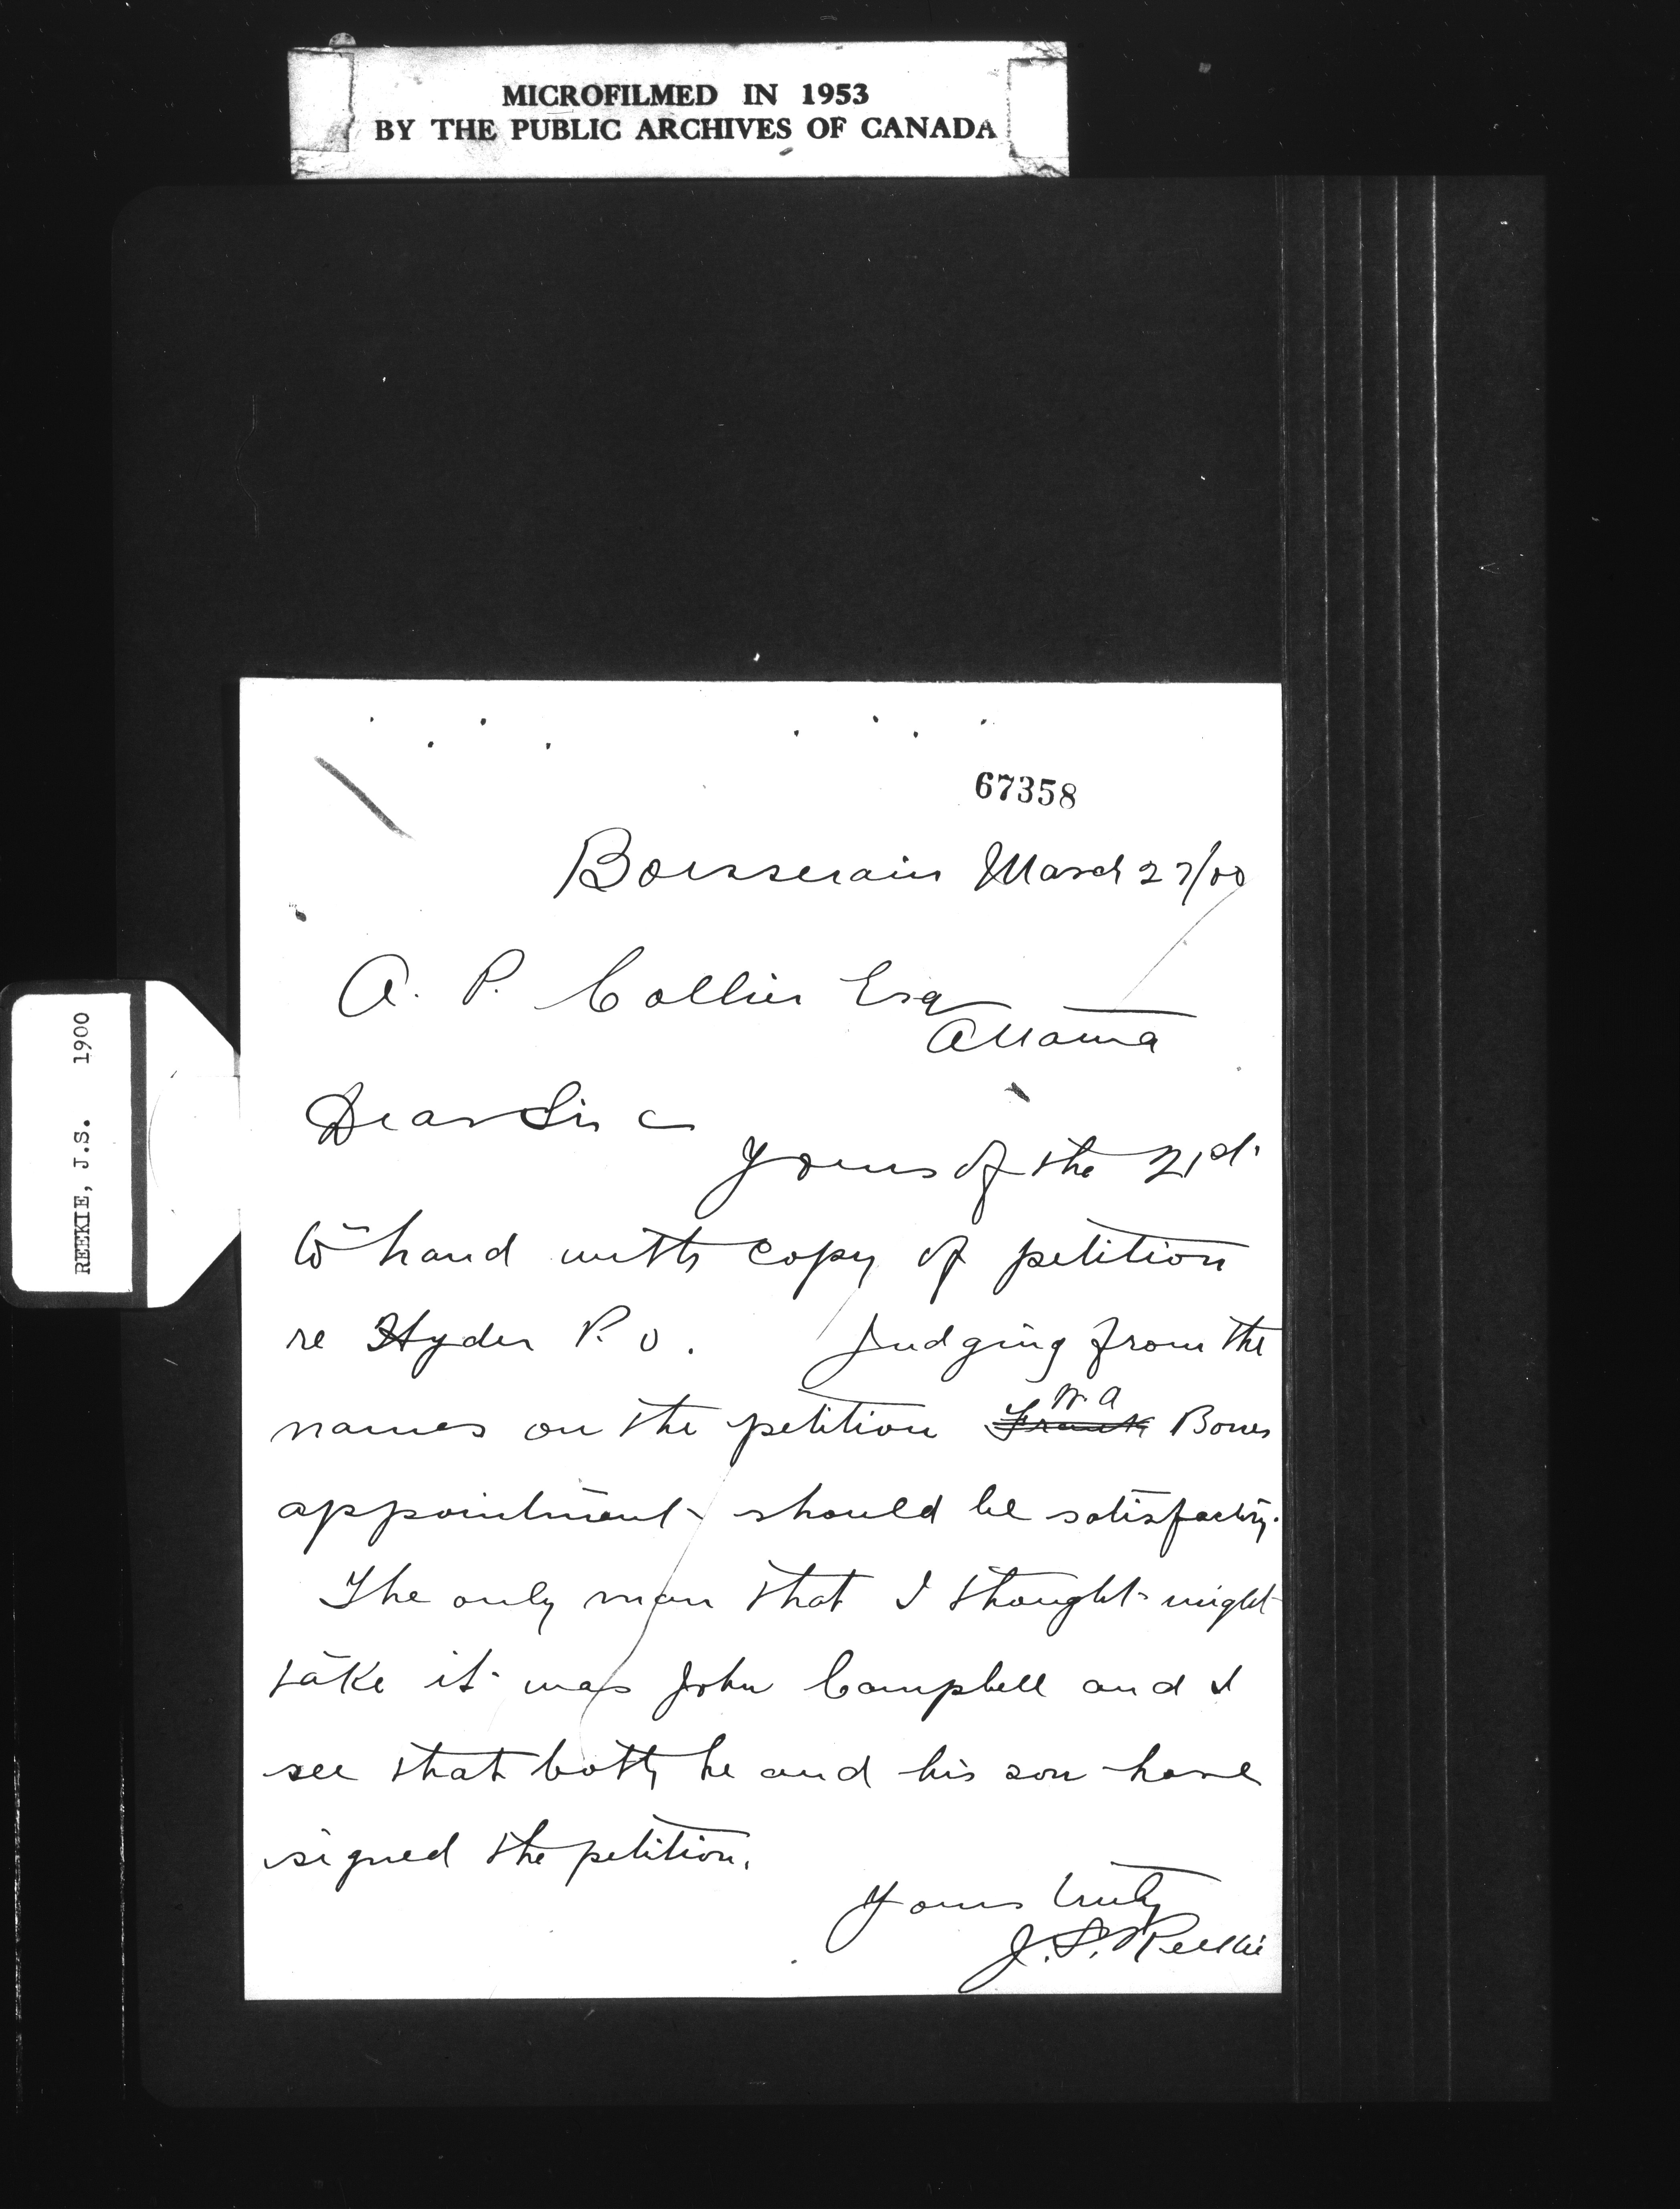 MICROFILMED IN 1953
BY THE PUBLIC ARCHIVES OF CANADA
REEKIE, J.S. 1900
67358
Boissevain March 27/00
A. P. Collier Esq
Ottawa
Dear Sir
Yours of the 21st
to hand with copy of petition
re Hyder P. O. Judging from the
W. A
names on the petition Frank Bones
appointment should be satisfactory.
The only man that I thought might
take it was John Campbell and I
see that both he and his son have
signed the petition.
Yours truly
J. S. Reekie